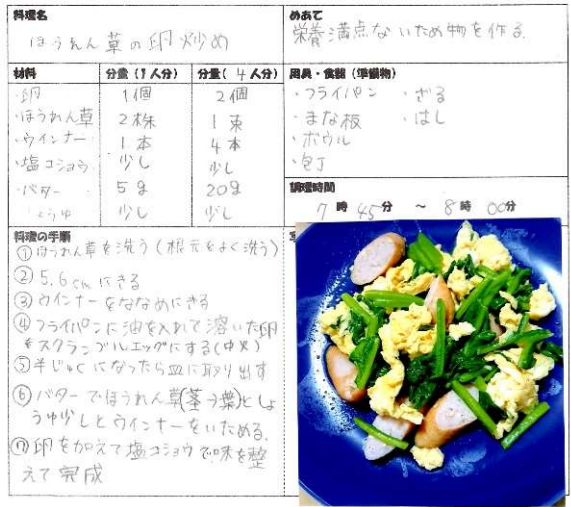 料理名
ほうれん草の卵炒め
めあて
栄養満点ないため物を作る。
材料 分量(1人分) 分量(4人分)
・卵 1個 2個
・ほうれん草 2株 1束
・ウインナー 1本 4本
・塩コショウ 少し 少し
・バター 5g 20g
しょうゆ 少し 少し
用具・食器(準備物)
・フライパン ・ざる
・まな板 ・はし
・ボウル
・包丁
調理時間
7時45分 ~ 8時00分
料理の手順
①ほうれん草を洗う(根元をよく洗う)
②5.6cmにきる
③ウインナーをななめにきる
④フライパンに油を入れて溶いた卵
をスクランブルエッグにする(中火)
⑤半じゅくになったら皿に取り出す
⑥バターでほうれん草(茎→葉)としょ
うゆ少しとウインナーをいためる。
⑦卵を加えて塩コショウで味を整
えて完成